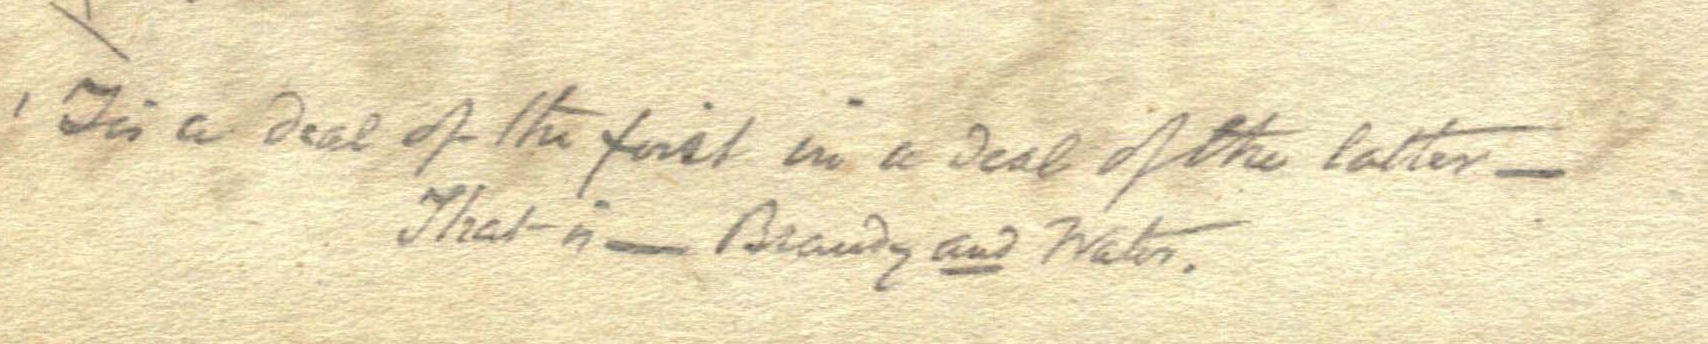 'Tis a deal of the first in a deal of the latter —
That is — Brandy and Water.